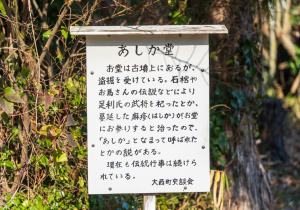 あしか堂
お堂は古墳上にあるが、
盗掘を受けている。石棺や
お鳥さんの伝説などにより
足利氏の武将を祀ったとか、
蔓延した麻疹(はしか)がお堂
にお参りすると治ったので、
「あしか」となまって呼ばれた
とかの説がある。
現在も伝統行事は続けら
れている。
大西町史談会